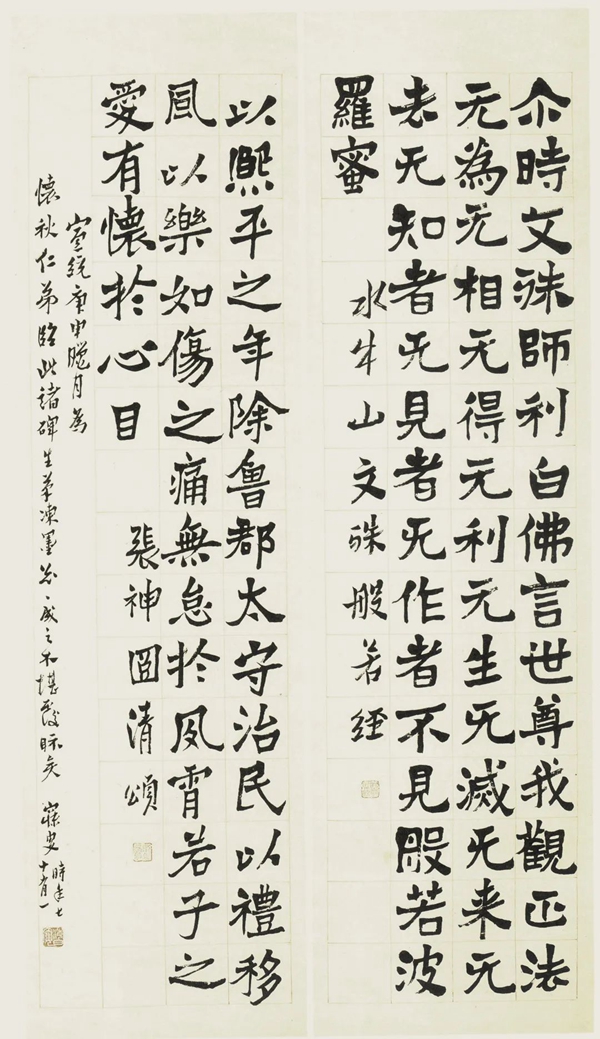 尒時文殊師利白佛言世尊我觀正法
无為无相无得无利无生无滅无来无
去无知者无見者无作者不見般若波
羅蜜
水牛山文殊般若經
以熙平之年除魯郡太守治民以禮移
風以樂如傷之痛無怠於夙宵若子之
愛有懷於心目
張神囧清頌
宣統庚申臘月為
懷秋仁弟臨此諸碑生筆凍墨忽〻成之不堪發眎矣 寐叟 時年七
十有一